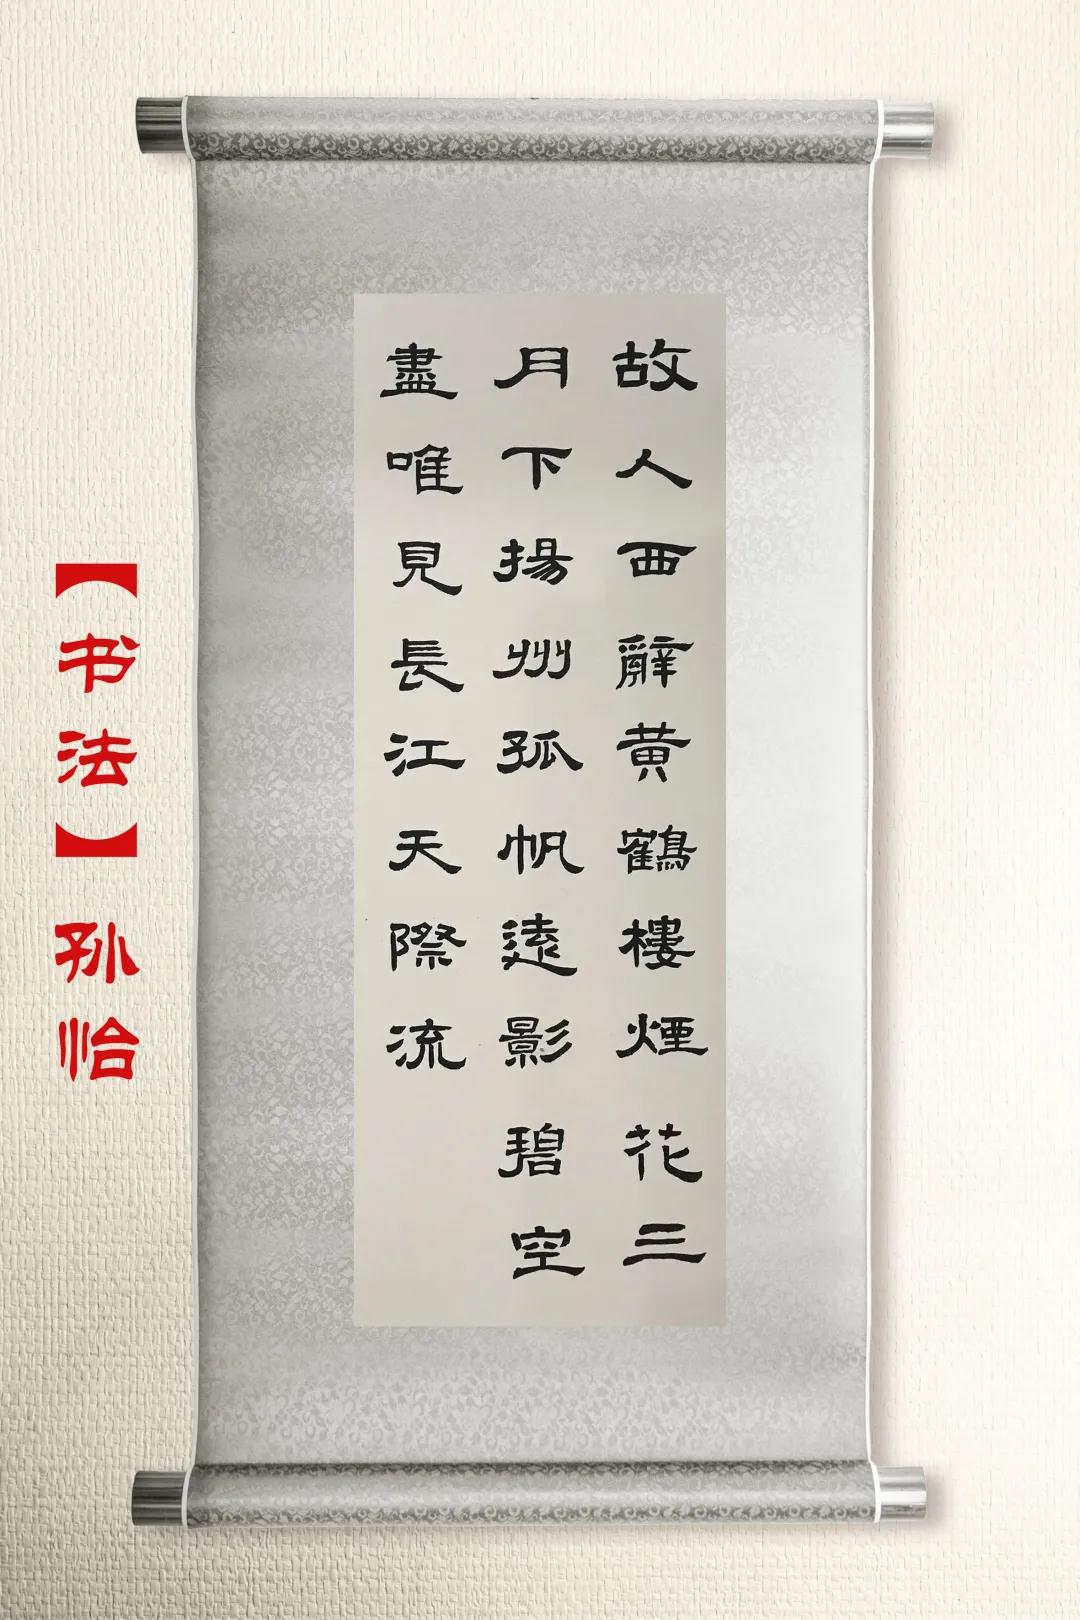 故人西辭黄鶴樓煙花三
月下揚州孤帆遠影碧空
盡唯見長江天際流
【书法】孙怡